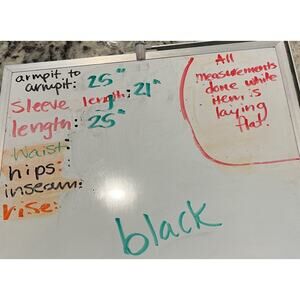 armpit to
armpit: 25"
Sleeve length: 21"
length: 25"
waist:
hips:
inseam:
rise:
All
measurements
done while
item is
laying
flat.
black